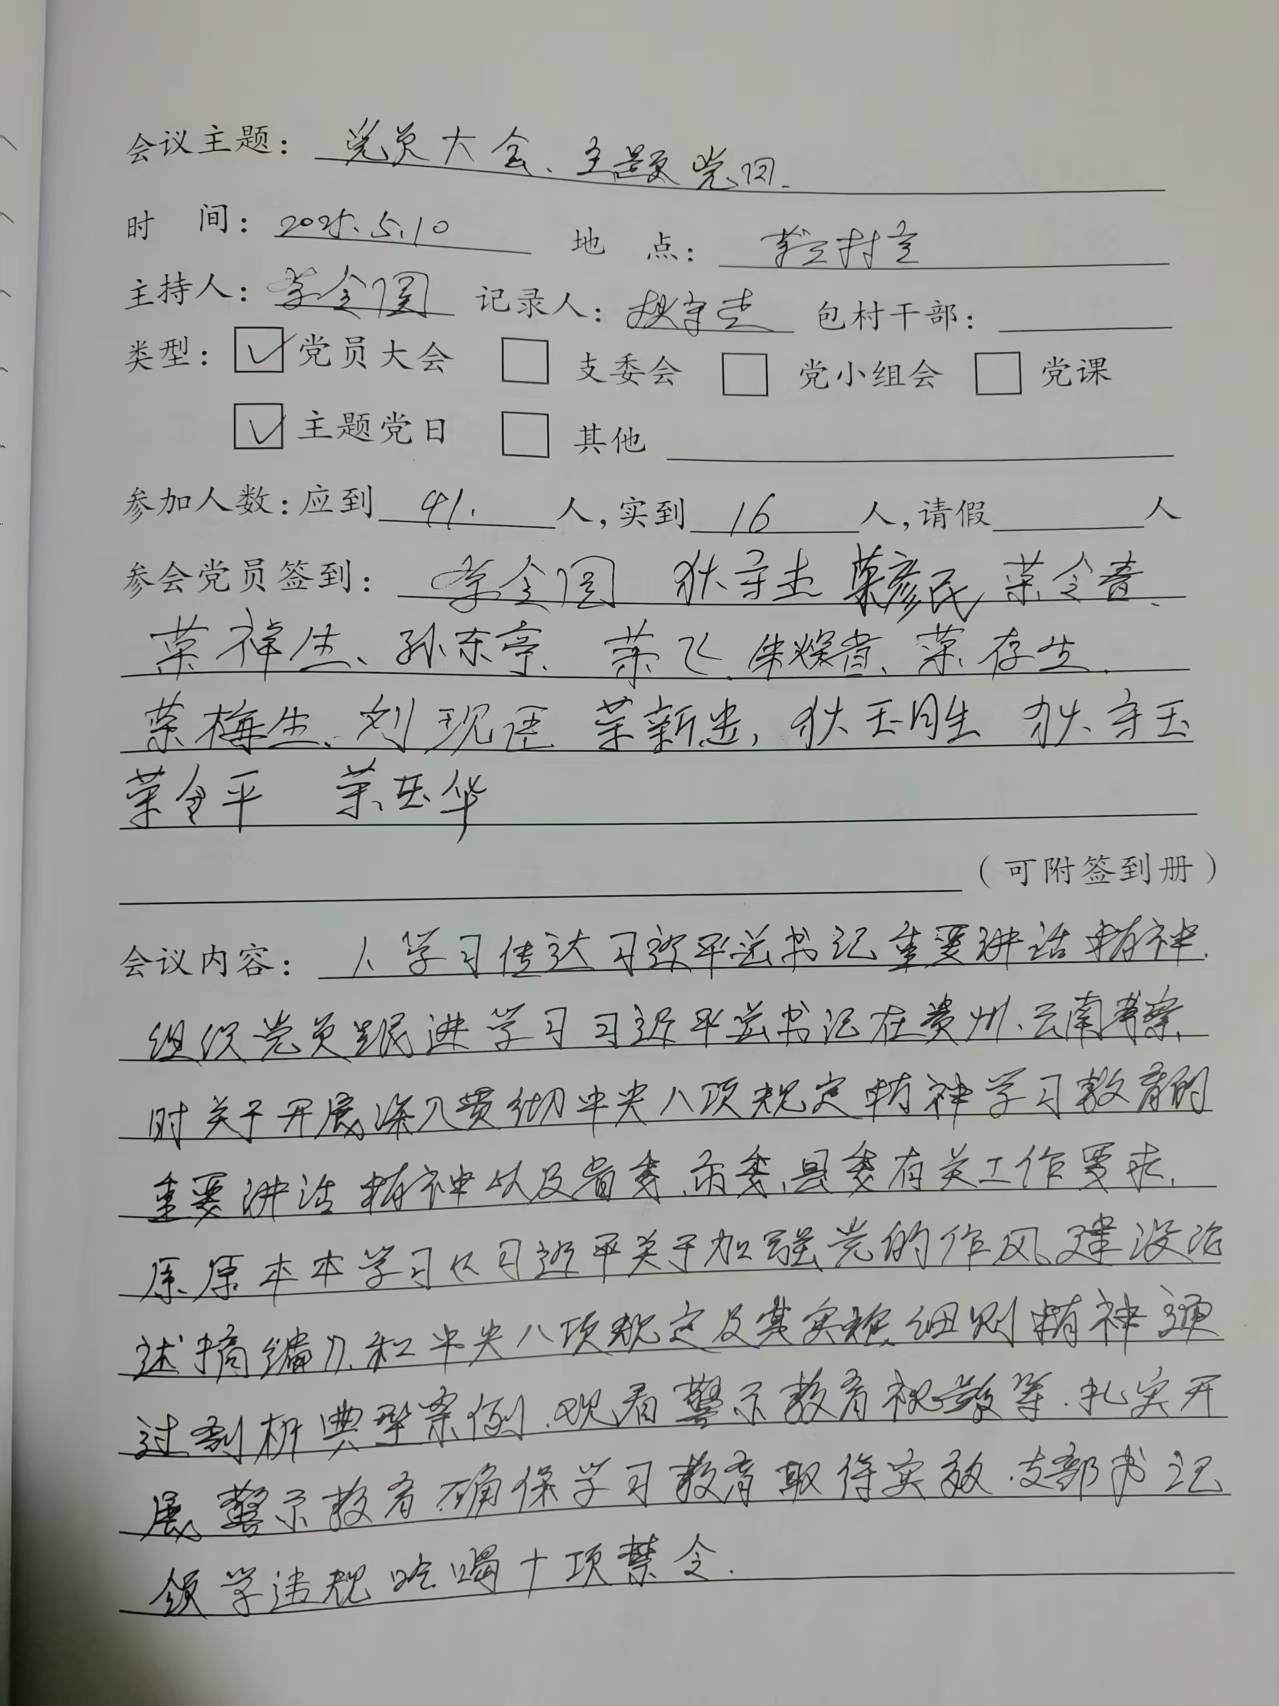 会议主题：党员大会、主题党日.
时 间：2025.5.10 地 点：村室
主持人： 记录人：狄守杰 包村干部：
类型：☑党员大会 □支委会 □党小组会 □党课
☑主题党日 □其他
参加人数：应到 41. 人，实到 16 人，请假 人
参会党员签到： 狄守杰 荣彦民 荣令春、
荣禄生、孙东亭、荣飞、荣存生、
荣梅生、刘现语 荣新忠，狄玉生 狄守玉
荣金平 荣英华
（可附签到册）
会议内容：1、学习传达习近平总书记重要讲话精神，
组织党员跟进学习习近平总书记在贵州、云南考察
时关于开展深入贯彻中央八项规定精神学习教育的
重要讲话精神以及省委、市委、县委有关工作要求，
原原本本学习《习近平关于加强党的作风建设论
述摘编》和中央八项规定及其实施细则精神通
过剖析典型案例、观看警示教育视频等、扎实开
展警示教育、确保学习教育取得实效、支部书记
领学违规吃喝十项禁令.